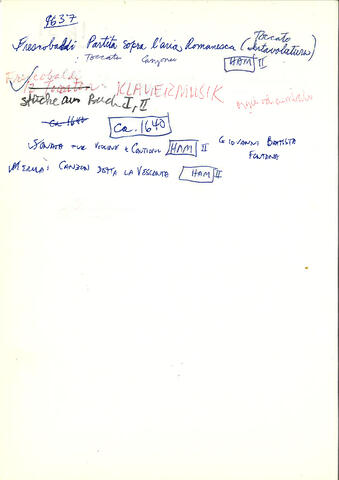 9637
Frescobaldi Partita sopra l'aria Romanesca (Toccate Intavolatura)
: Toccate Canzones HAM II
Frescobaldi
KLAVIERMUSIK
Stücke aus Buch I, II
ca 1640
ca. 1640
Sonata per Violino e HAM II Giovanni Battista Fontana
Merula: Canzon detta la Vesconta HAM II